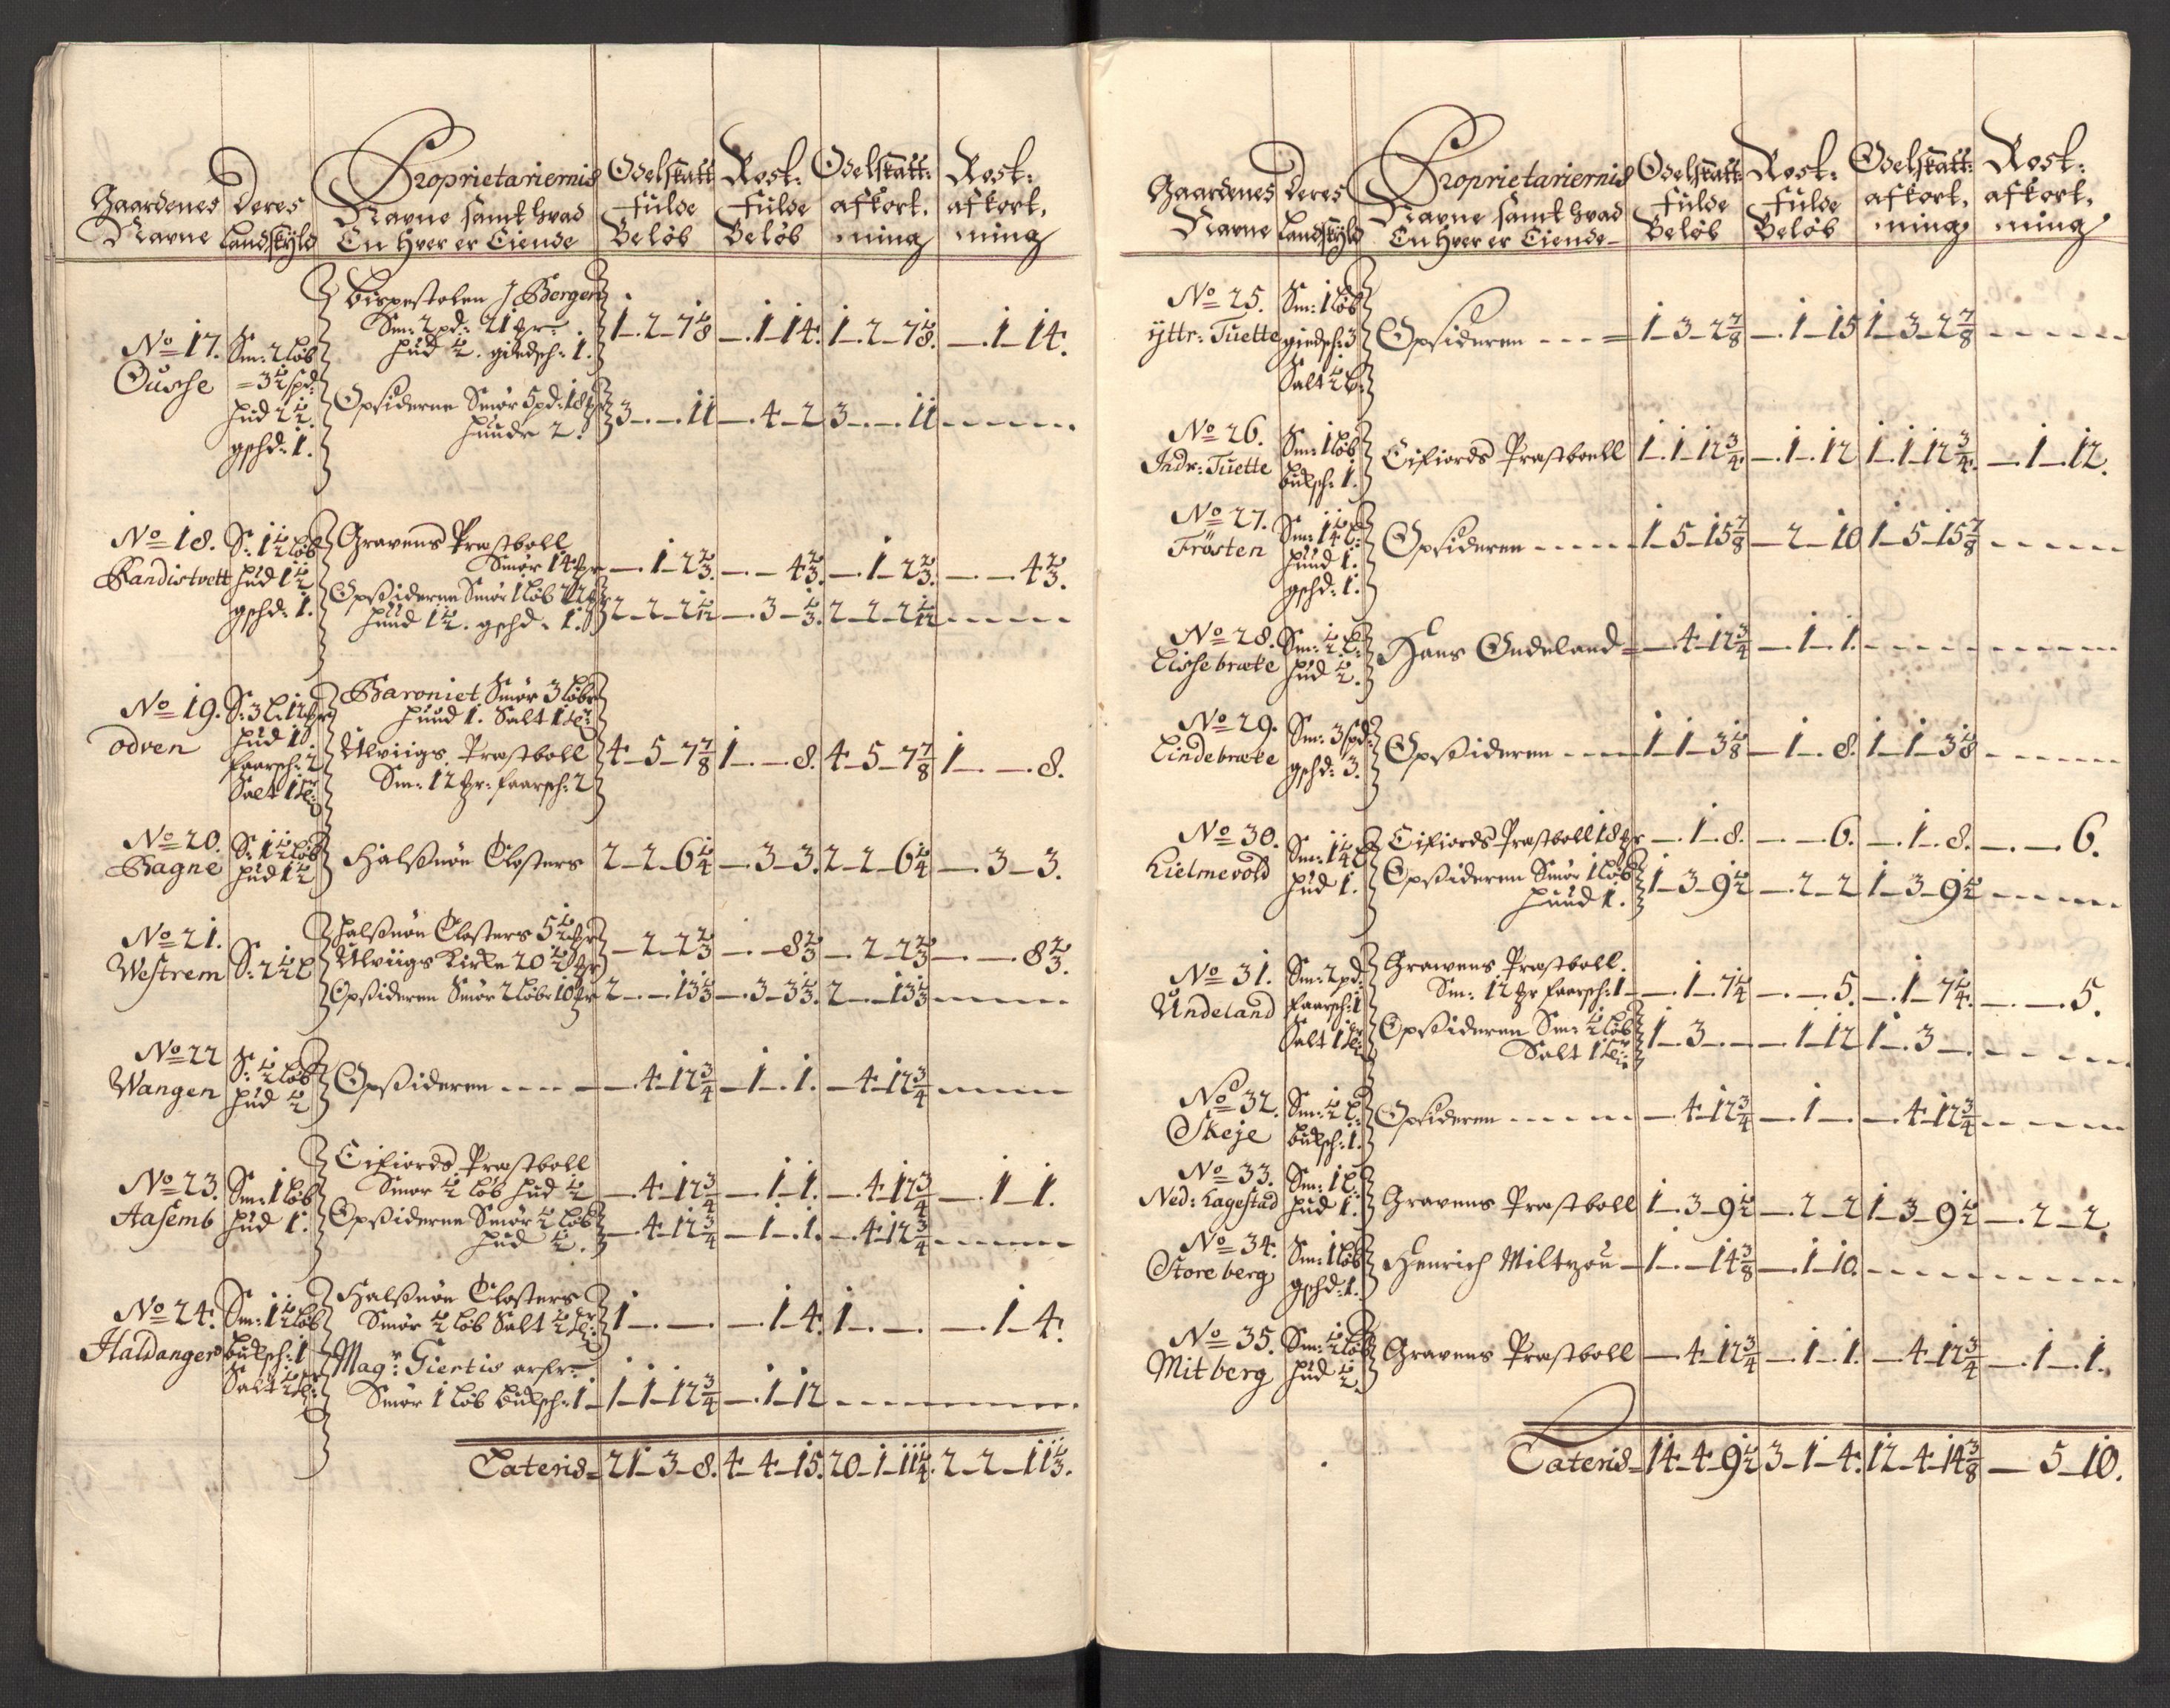 Gaardenes Navne | Deres Landskÿld | Proprietariernis Navne samt hvad En Hver er Eiende | Odelskatt fulde Beløb | Rost: fulde Beløb | Odelskatt: afkort, ning | Rost: afkort, ning
No 17. Ousse | Sm: 2 løb = 3½ spd: hud 2½. gschd: 1. | Bispestolen J Bergen Sm: 2 pd: 21 hr: hud ½. giedsch: 1. | 1-2-7⅛ | -1-14. | 1-2-7⅛. | -.1-14.
Opsiderne Smør 5 pd: 18 hr hunde 2. | 3-.-11 | -4-2 | 3-.-11 | ------
No 18. Handistvett | S: 1½ løb hud 1½ gschd: 1. | Gravens Præstboll Smør 14 hr | -.1-2⅔. | -.-4⅔. | -.1-2⅔. | -.-4⅔.
Opsiderne Smør 1 løb 22 hr hund 1½. gschd: 1. | 2-2-2 1/12 | -.3-⅓. | 2-2-2 1/12 | ------
No 19. odven | S: 3 l: 12 hr hud 1 faarsch: 2 Salt 1 | Baroniet Smør 3 løbe hund 1. Salt 1
Ulviigs Præstboll Sm: 12 hr: faarsch: 2 | 4-5-7⅞ | 1-.-8. | 4-5-7⅞ | 1-.-8.
No 20. Hagne | S: 1½ løb hud 1½ | Halsnøn Closters | 2-2-6¼ | -.3-3. | 2-2-6¼ | -.3-3.
No 21. Westrem | S: 2½ l | halsnøn Closters 5½ hr
Ulviigs Kirke 20½ hr | -2-2⅔ | -.-8⅔ | -.2-2⅔ | -.-8⅔.
Opsideren Smør 2 løbe 10 hr | 2-.-13⅓ | -.3-3⅓. | 2-.-13⅓ | ------
No 22 Wangen | S: ½ løb hud ½ | Opsideren | -4-12¾ | -1-.1. | -4-12¾ | ------
No 23. Aasemb | Sm: 1 løb hud 1. | Eifiords Præstboll Smør ½ løb hud ½ | -.4-12¾ | -.1-1. | -.4-12¾ | -.1-1.
Opsiderne Smør ½ løb hud ½. | -.4-12¾ | -.1-.1. | -.4-12¾ | ------
No 24. Haldanger | Sm: 1½ løb buksch: 1 Salt ½ | Halsnøn Closters Smør ½ løb Salt ½ | 1-.-. | -.1-4. | 1-.-. | -.1-4.
Magr: Giertis arfv: Smør 1 løb buksch: 1 | 1-1-12¾ | -.1-12 | ------
Lateris | 21-3-8. | 4-4-15. | 20-1-11¼. | 2-2-11⅓.
Gaardenes Navne | Deres Landskÿld | Proprietariernis Navne samt hvad En Hver er Eiende | Odelskatt: fulde Beløb | Rost: fulde Beløb | Odelskatt: afkort, ning | Rost: afkort, ning
No 25. ÿttr: Tuette | Sm: 1 løb giedsch: 3 Salt ½ | Opsideren | 1-3-2⅞ | -.1-15 | 1-3-2⅞ | ------
No 26. Indr: Tuette | Sm: 1 løb buksch: 1. | Eifiords Præstboell | 1.1.12¾. | -.1.12 | 1.1.12¾. | -.1-12.
No 27. Frösten | Sm: 1¼ l: hund 1. gschd: 1. | Opsideren | 1-5-15⅞ | -2-10 | 1-5-15⅞ | ------
No 28. Lissebræke | Sm: ½ l: hud ½. | Hans Ondeland | -4-12¾ | -.1-.1. | ------
No 29. Lindebræke | Sm: 3 spd: gschd: 3. | Opsideren | 1-1-3⅛ | -1-.8. | 1-1-3⅛ | ------
No 30. Kielmevold | Sm: 1¼ l hud 1. | Eifiords Præstboll 18 hr | -.1-8. | -.-6. | -.1-8. | -.-6.
Opsideren Smør 1 løb hund 1. | 1-3-9½ | -.2-2 | 1-3-9½ | ------
No 31. Undeland | Sm: 2 pd: faarsch: 1 Salt 1 | Grawens Præstboll. Sm: 12 hr faarsch: 1 | -.1-7¼ | -.-5. | -.1-7¼. | -.-5.
Opsideren Sm: ½ løb Salt 1 | 1-.3-. | -.1-12 | 1-.3-. | ------
No 32. Skeje | Sm: ½ l: buksch: 1. | Opsideren | -.4-12¾ | -.1-. | -.4-12¾ | ------
No 33. Ned: Kagestad | Sm: 1 l: hud 1. | Gravens Præstboll | 1-.3-9½ | -.2-2 | 1-3-9½ | -.2-2
No 34. Store berg | Sm: 1 løb gschd: 1. | Henrich Miltzou | 1-.-14⅜ | -.1-10. | ------
No 35. Mitberg | Sm: ½ løb hud ½. | Gravens Præstboll | -4-12¾ | -.1-.1. | -.4-12¾ | -.1-.1.
Lateris | 14-4-9½ | 3-1-4. | 12-4-14⅜ | -5-10.